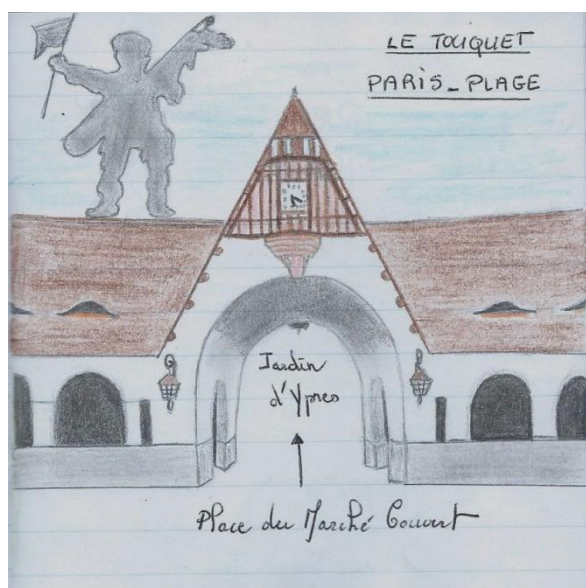 LE TOUQUET
PARIS_PLAGE
Jardin
d'Ypres
Place du Marché Couvert